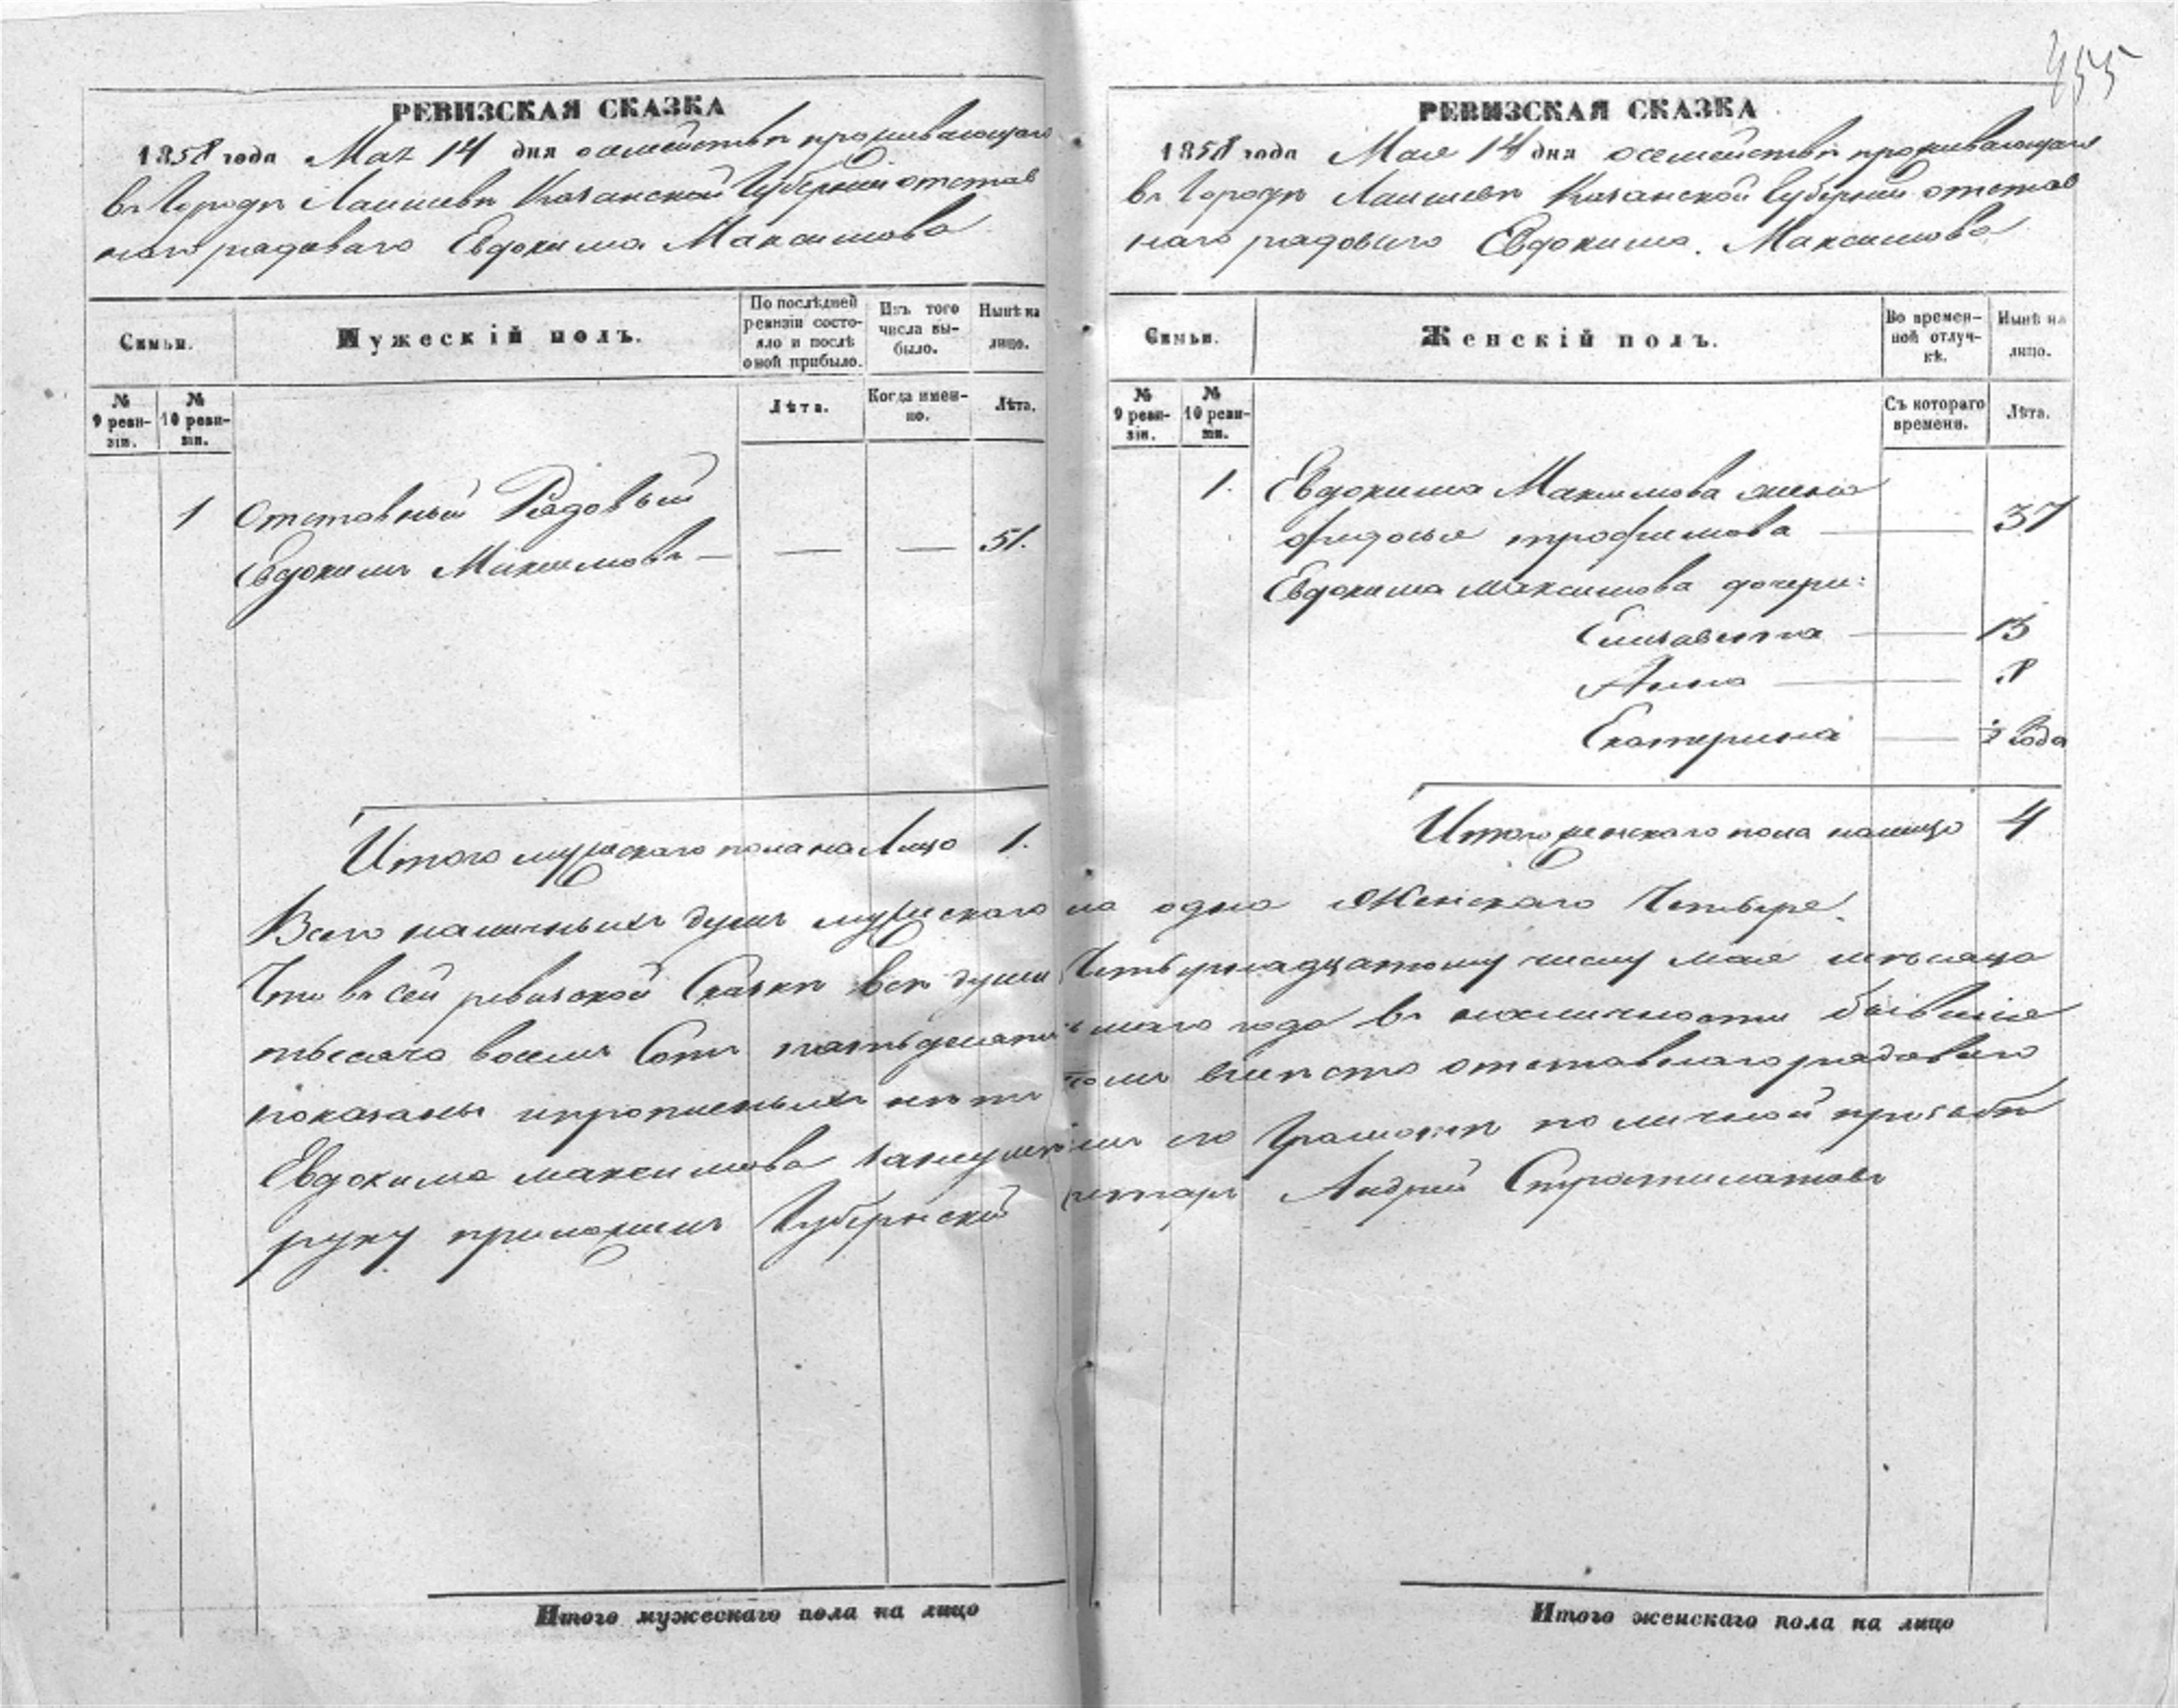 455
РЕВИЗСКАЯ СКАЗКА
1858 года Мая 14 дня о семействѣ проживающаго
въ Городѣ Лаишевѣ Казанской Губерніи отстав
наго рядоваго Евдокима Максимова
Семьи.
Мужескій полъ.
По послѣдней ревизіи состояло и послѣ оной прибыло.
Изъ того числа выбыло.
Нынѣ на лицо.
№ 9 ревизіи.
№ 10 ревизіи.
Лѣта.
Когда именно.
Лѣта.
1 Отставный Рядовый
Евдокимъ Максимовъ — — — 51.
Итого мужескаго пола на Лицо 1.
РЕВИЗСКАЯ СКАЗКА
1858 года Мая 14 дня о семействѣ проживающаго
въ Городѣ Лаишевѣ Казанской Губерніи отстав
наго рядоваго Евдокима Максимова
Семьи.
Женскій полъ.
Во временной отлучкѣ.
Нынѣ на лицо.
№ 9 ревизіи.
№ 10 ревизіи.
Съ котораго времени.
Лѣта.
1. Евдокима Максимова жена
Федосья трофимова — 37
Евдокима Максимова дочери:
Елизавета — 15
Анна — 8
Екатерина — ½ года
Итого женскаго пола налицо 4
Всего наличныхъ душъ мужескаго одна Женскаго Четыре.
Что въ сей ревизской Сказкѣ всѣ души Четырнадцатому числу мая мѣсяца
тысяча восемь Сотъ пятьдесятъ года въ наличности бывшіе
показаны и прописныхъ нѣтъ въ томъ вмѣсто отставнаго рядоваго
Евдокима максимова его Грамотѣ по личной прозьбѣ
руку приложилъ Губернскій Андрей Стратилатовъ
Итого мужескаго пола на лицо
Итого женскаго пола на лицо